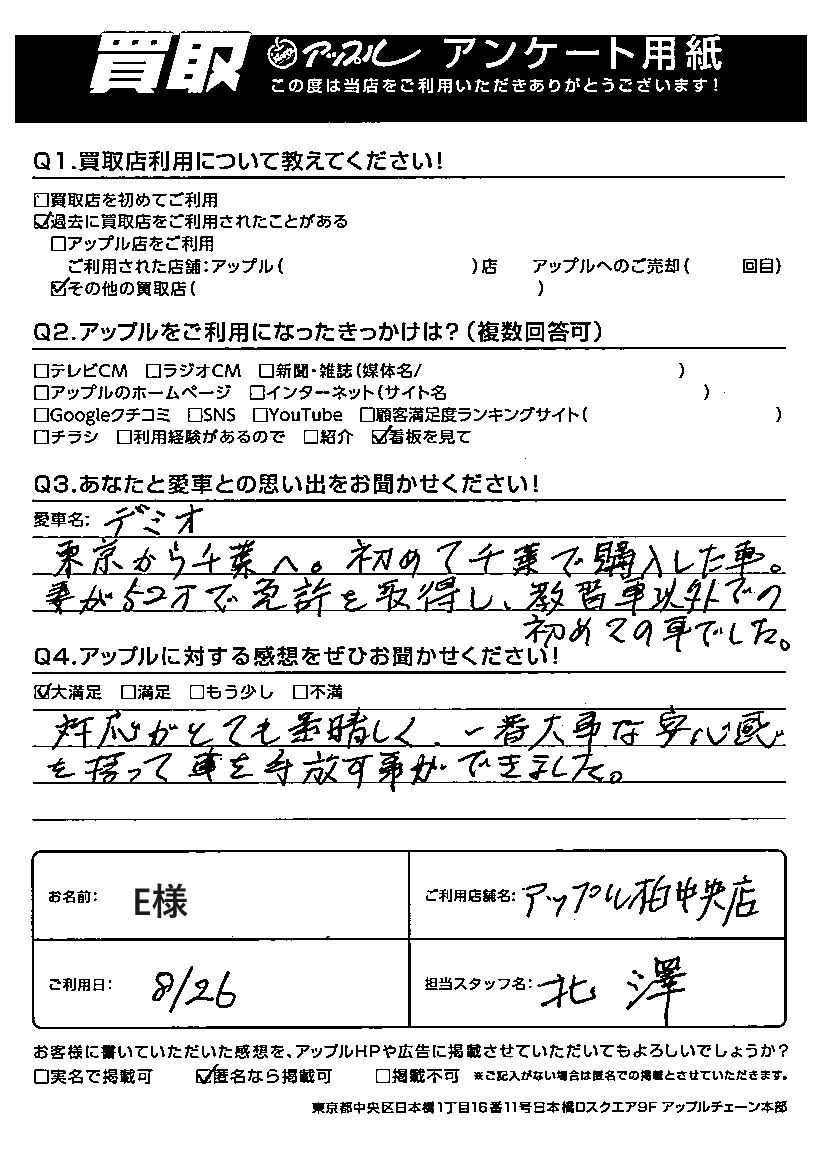 買取 アップル アンケート用紙
この度は当店をご利用いただきありがとうございます!
Q1.買取店利用について教えてください!
□買取店を初めてご利用
☑過去に買取店をご利用されたことがある
□アップル店をご利用
ご利用された店舗:アップル( )店 アップルへのご売却( 回目)
☑その他の買取店( )
Q2.アップルをご利用になったきっかけは?(複数回答可)
□テレビCM □ラジオCM □新聞・雑誌(媒体名/ )
□アップルのホームページ □インターネット(サイト名 )
□Googleクチコミ □SNS □YouTube □顧客満足度ランキングサイト( )
□チラシ □利用経験があるので □紹介 ☑看板を見て
Q3.あなたと愛車との思い出をお聞かせください!
愛車名: デミオ
東京から千葉へ。初めて千葉で購入した車。
妻が52才で免許を取得し、教習車以外での
初めての車でした。
Q4.アップルに対する感想をぜひお聞かせください!
☑大満足 □満足 □もう少し □不満
対応がとても素晴しく、一番大事な安心感
を持って車を手放す事ができました。
お名前: E様 ご利用店舗名: アップル柏中央店
ご利用日: 8/26 担当スタッフ名: 北澤
お客様に書いていただいた感想を、アップルHPや広告に掲載させていただいてもよろしいでしょうか?
□実名で掲載可 ☑匿名なら掲載可 □掲載不可 ※ご記入がない場合は匿名での掲載とさせていただきます。
東京都中央区日本橋1丁目16番11号日本橋Dスクエア9F アップルチェーン本部